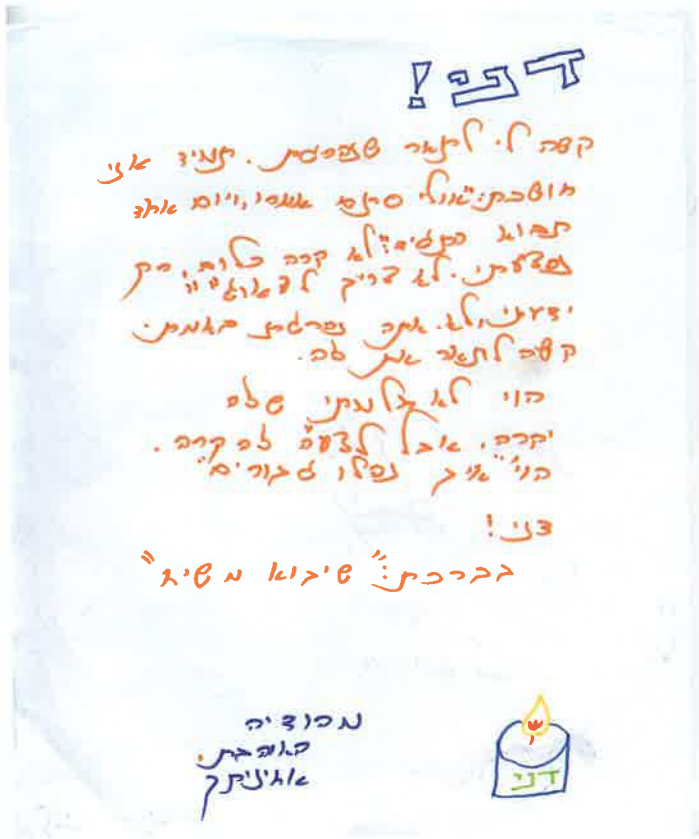 דני!
קשה לי לתאר שנהרגת. תמיד אני
חושבת:"אולי סתם ,ויום אחד
תבוא לא קרה כלום, רק
נפצעתי. לא צריך לדאוג""
ידעתי,לא. אתה נהרגת באמת.
קשה לתאר את זה.
הוי לא שזה
יקרה. אבל לצערי זה קרה.
הוי "איך נפלו גבורים"
דני!
בברכת:"שיבוא משיח"
מהודיה
האוהבת.
אחיניתך
דני